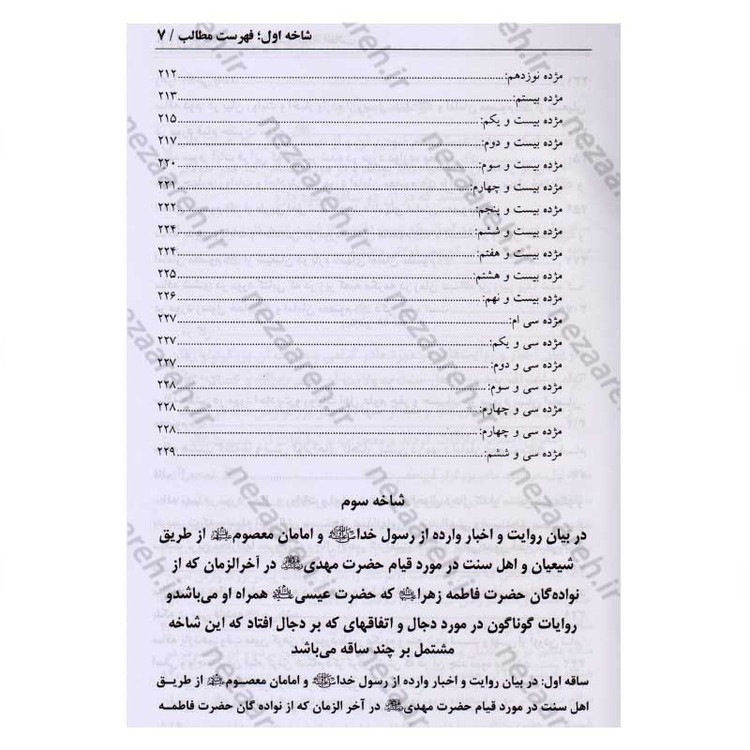 شاخه اول؛ فهرست مطالب / ۷
مژده نوزدهم: ۲۱۲
مژده بیستم: ۲۱۳
مژده بیست و یکم: ۲۱۵
مژده بیست و دوم: ۲۱۷
مژده بیست و سوم: ۲۲۰
مژده بیست و چهارم: ۲۲۱
مژده بیست و پنجم: ۲۲۲
مژده بیست و ششم: ۲۲۴
مژده بیست و هفتم: ۲۲۴
مژده بیست و هشتم: ۲۲۵
مژده بیست و نهم: ۲۲۶
مژده سی ام: ۲۲۷
مژده سی و یکم: ۲۲۷
مژده سی و دوم: ۲۲۷
مژده سی و سوم: ۲۲۸
مژده سی و چهارم: ۲۲۸
مژده سی و چهارم: ۲۲۸
مژده سی و ششم: ۲۲۹
شاخه سوم
در بیان روایت و اخبار وارده از رسول خدا و امامان معصوم از طریق
شیعیان و اهل سنت در مورد قیام حضرت مهدی در آخرالزمان که از
نواده‌گان حضرت فاطمه زهرا که حضرت عیسی همراه او می‌باشدو
روایات گوناگون در مورد دجال و اتفاقهای که بر دجال افتاد که این شاخه
مشتمل بر چند ساقه می‌باشد
ساقه اول: در بیان روایت و اخبار وارده از رسول خدا و امامان معصوم از طریق
اهل سنت در مورد قیام حضرت مهدی در آخر الزمان که از نواده گان حضرت فاطمه
nezaareh.ir